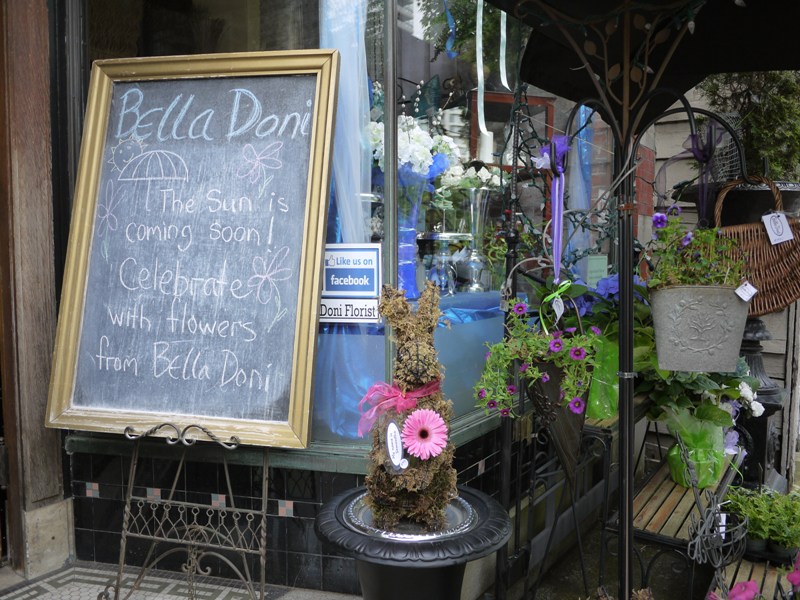 Bella Doni
The Sun is
coming soon!
Celebrate
with flowers
from Bella Doni
Like us on
facebook
Doni Florist